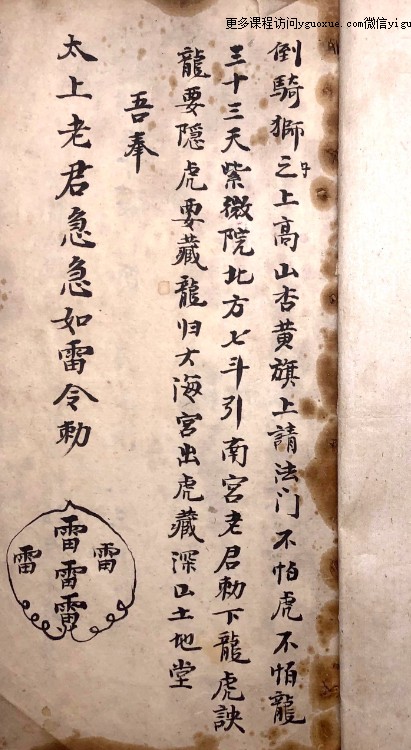 更多课程访问yguoxue.com微信yigu
倒騎獅子上高山杏黃旗上請法门不怕虎不怕龍
三十三天紫微院北方七斗引南宮老君勅下龍虎訣
龍要隱虎要藏龍归大海宮出虎藏深山土地堂
吾奉
太上老君急急如雷令勅
雷
雷 雷 雷
雷